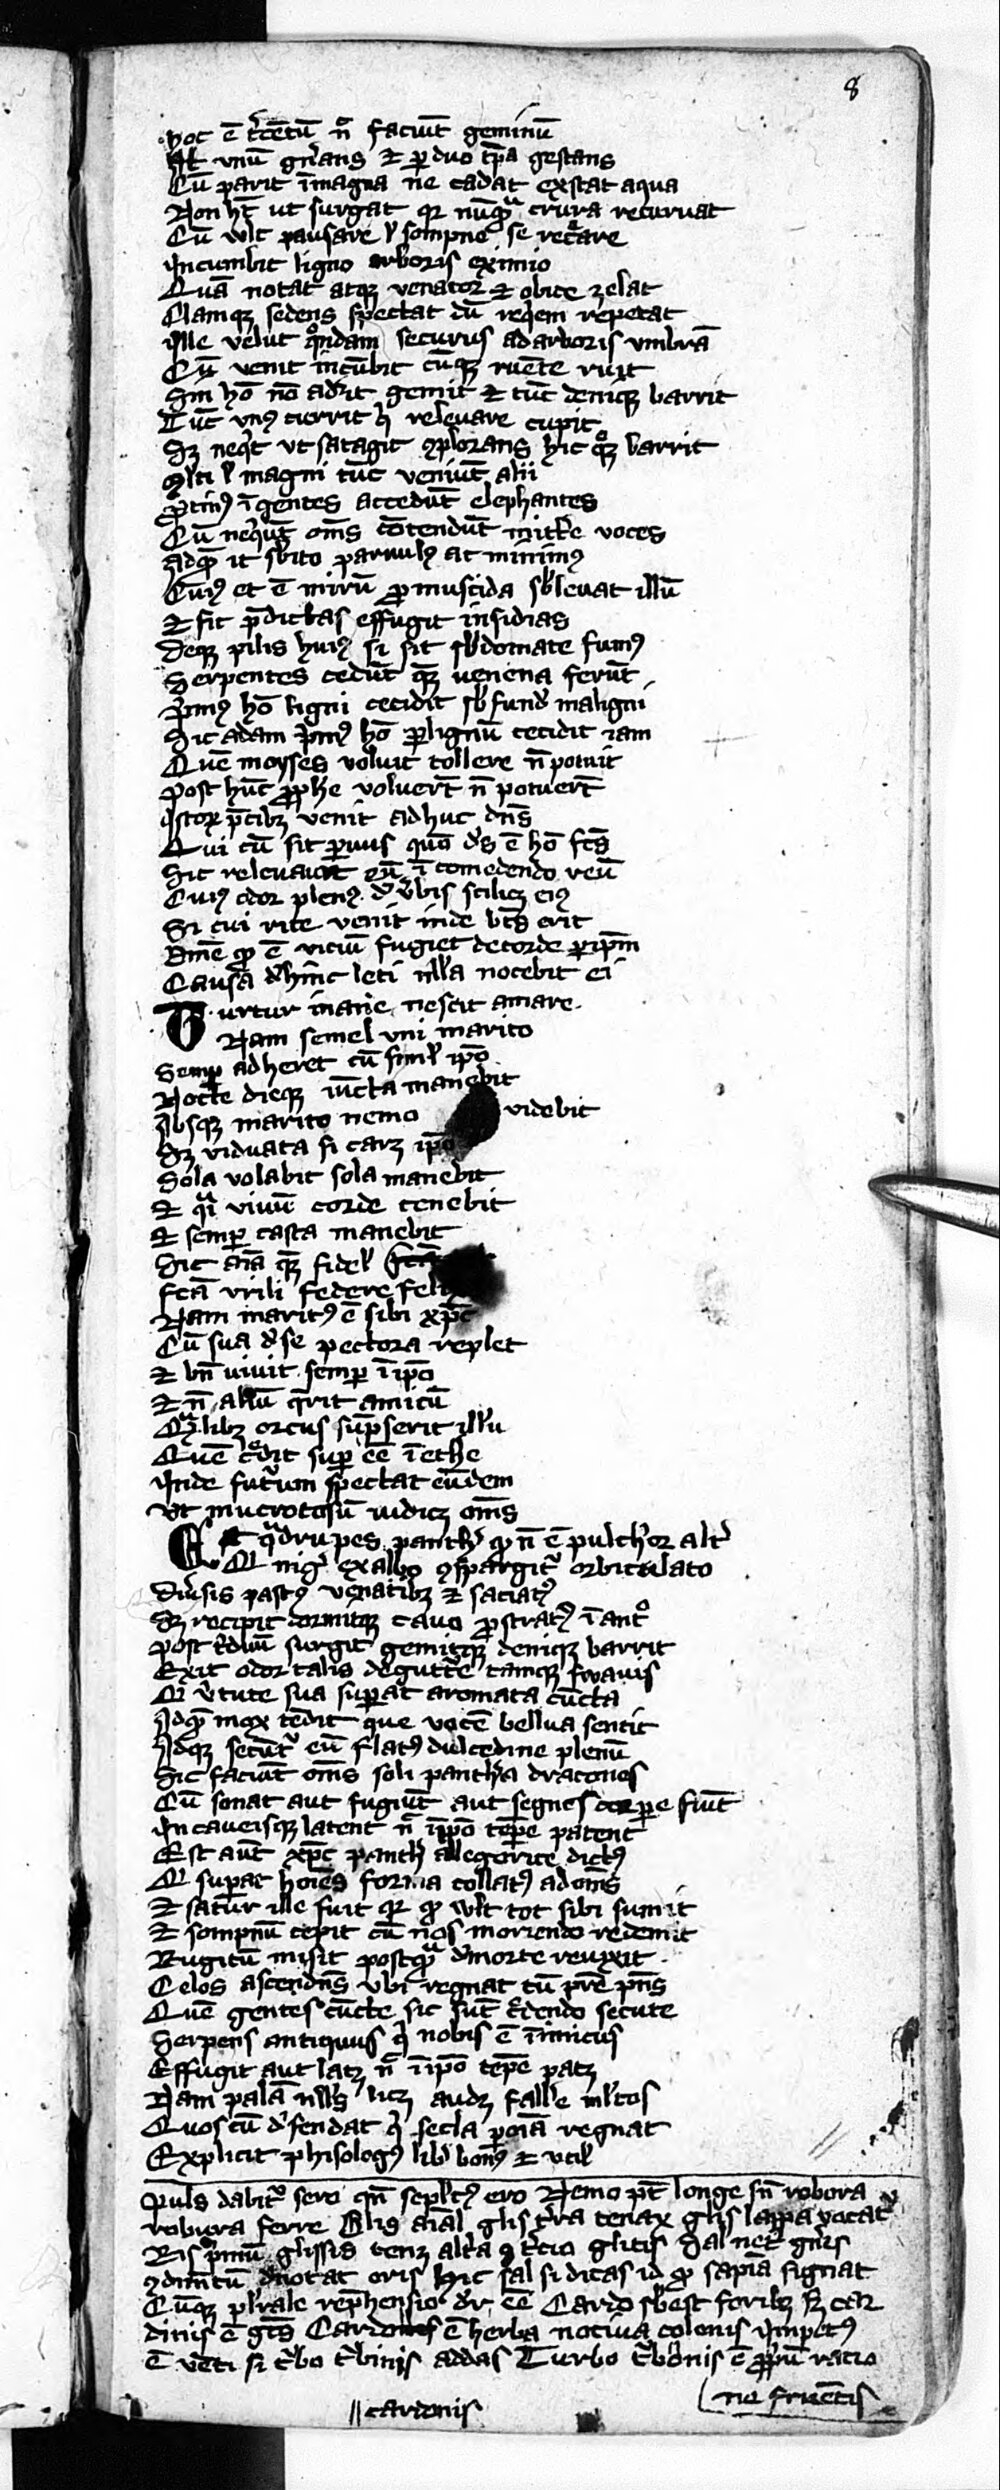 8
hoc ē t̄cētū nō faciūt geminū
At unū gn̄ans ⁊ ꝑ duo tp̄a gestans
Cū parit ī magna ne cadat exstat aqua
Non hȝ ut surgat qr nūqᵃ crura recuruat
Cū wlt pausare ł sompno se rec̄are
Incumbit ligno arboris eximio
Quā notat atqȝ venator ⁊ obice zelat
Clamqȝ sedens spectat dū req̄em repetat
Ille velut qͦndam securus ad arboris vmbrā
Cū venit incūbit cūqȝ ruēte ruit
Sin hō nō adꝰit gemit ⁊ tūc deniqȝ barrit
Tūc vnꝰ currit qⁱ releuare cupit
Sȝ neqⁱt ut satagit ꝯplorans hic qͦqȝ barrit
Mlti ł magni tūc veniūt alii
Ꝓtinꝰ īgentes accedūt elephantes
Cū neqⁱūt oms̄ cōtendūt mitt̄e voces
Ad qͦꝫ it sbito paruulꝰ at minimꝰ
Cuiꝰ et ē mirū ꝓmuscida sbleuat illū
⁊ sic p̄dictas effugit insidias
Deqȝ pilis huiꝰ si fit sb domate fumꝰ
Serpentes cedūt qȝ uenena ferūt
Pⁱmꝰ hō ligni cecidit sb fund̄ maligni
Sic adam pⁱmꝰ hō ꝑ lignū cecidit iam
Quē moyses voluit tollere n̄ potuit
Post hūc ꝓph̄e voluerūt n̄ potuerūt
Istoꝝ p̄cibȝ venit ad huc dn̄s
Qui cū sit ꝑuus quō d̄s ē hō fc̄s
Sic releuauit eū ī comedendo reū
Cuiꝰ odor plenꝰ d̄ v̄bis scilicȝ eiꝰ
Si cui rite venit inde bt̄s erit
Om̄e qͦ ē viciū fugiet de corde ꝑ ip̄m
Causa d̄hinc leti nlla nocebit ei
Turtur inane nescit amare
Nam semel vni marito
Semꝑ adheret cū siml ip̄o
Nocte dieqȝ iūcta manebit
Absqȝ marito nemo videbit
Sȝ viduata si carȝ ip̄o
Sola volabit sola manebit
⁊ qᵃ viuū corde tenebit
⁊ semꝑ casta manebit
Sic aīa qȝ fidel
fc̄a virili federe felix
Nam maritꝰ ē sibi xp̄c
Cū sua d̄ se pectora replet
⁊ bn̄ uiuit semꝑ ī ip̄o
⁊ n̄ aliū qͣrit amicū
Qᵃlibȝ orcus sūpserit illū
Quē c̄dit suꝑ eē ī ethe
Inde fut̄um spectat eūdem
Ut mucrotosū iudicȝ oms̄
Est qᵃdrupes panth̄ qͦ n̄ ē pulch̄or alt̄
Q niḡ ex albo ꝯspargit̄ orbiculato
Diuīsis pastꝰ venatibȝ ⁊ saciatꝰ
Se recipit dormitqȝ cauo ꝓstratꝰ ī antͦ
Post t̄duū surgit gemitqȝ deniqȝ barrit
Exit odor talis d̄ gutt̄e tamqȝ swauis
Q v̄tute sua suꝑat aromata cūcta
Ad qͦꝫ mox tēdit que vocē bellua sentit
Adqȝ secūt̄ eū flatꝰ dulcedine plenū
Sic faciūt oms̄ soli panth̄a dracones
Cū sonat aut fugiūt aut segnes corꝑe fiūt
In caueisqȝ latent n̄ ip̄o tēpe patent
Est aūt xp̄c panth̄ allegorice dictꝰ
Q suꝑat hoīes forma collatꝰ ad oms̄
⁊ satur ille fuit qr qͦ wlt tot sibi sumit
⁊ sompnū cepit cū nos moriendo redemit
Rugitū misit postqᵃ d̄ morte reuixit
Celos ascendēs vbi regnat cū pr̄e pn̄s
Quē gentes cūcte sic sūt c̄dendo secute
Serpens antiquus qⁱ nobis ē īimicus
Effugit aut latȝ n̄ ī ip̄o tēpe patȝ
Nam palā nllꝰs licȝ audȝ fall̄e mltos
Quos cū d̄fendat qⁱ secla ꝑ oīa regnat
Explicit phisologꝰ lib̄ bonꝰ ⁊ util
Puls dabit̄ sero qn̄ sepltꝰ ero Nemo pt̄ longe sn̄ robora
robora ferre Glis aīal glis t̄ra tenax glis lappa vocat̄
Ris pⁱmū glissis tenȝ alt̄a ꝯ t̄cio glitis Sal net̄ gn̄is
ꝯdimtū d̄notat oris Hic sal si dicas id qͦ sapīa signat
Cūqȝ pl̄rale rep̄hensio dr̄ eē Cardo sbest foribȝ sȝ car
dinis ē gt̄s Cardones ē herba nociua colonis Impetꝰ
ē vēti si t̄bo t̄binis addas Turbo t̄bonis ē ꝓpriū racio
ne fruētis
cardonis